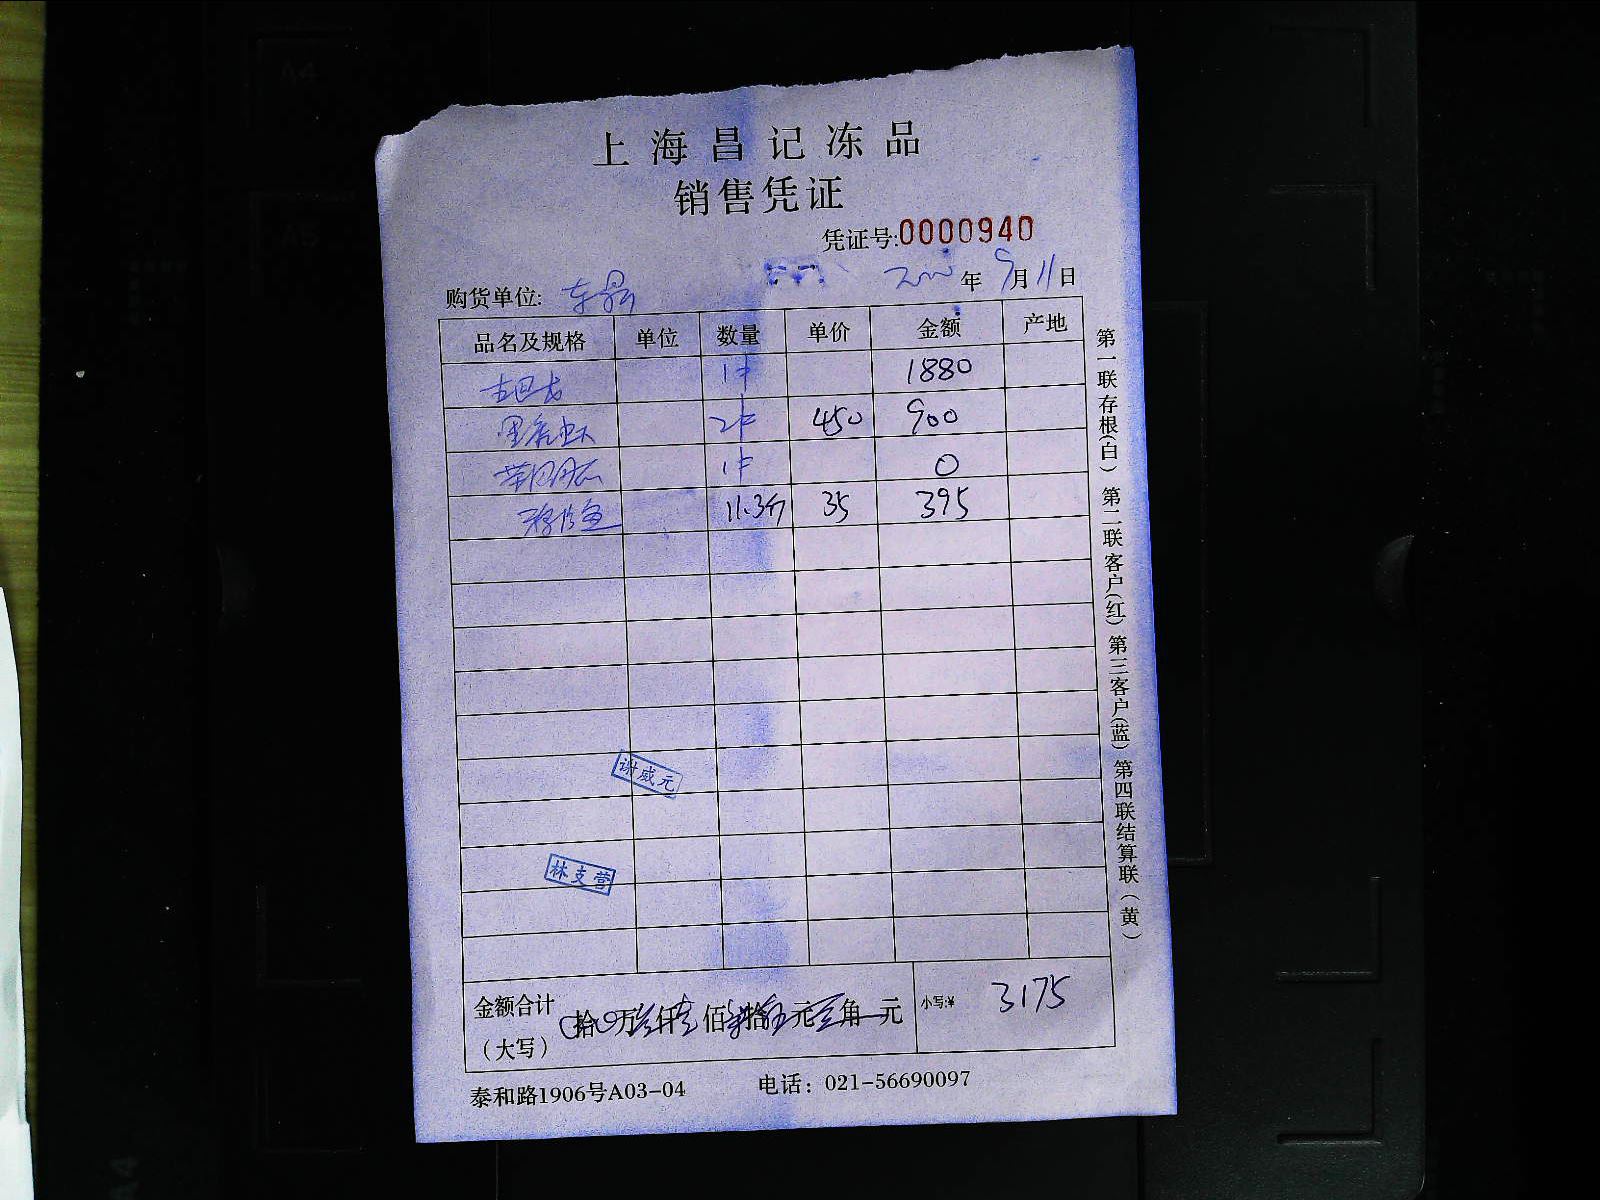 上海昌记冻品
销售凭证
凭证号:0000940
购货单位: 年 9月11日
品名及规格 单位 数量 单价 金额 产地
1件 1880
黑虎虾 2件 450 900
1件 0
11.3斤 35 395
谢威元
林支营
金额合计 拾 万 仟 佰 拾 元 角 元 小写:¥ 3175
(大写)
泰和路1906号A03-04 电话: 021-56690097
第一联存根(白) 第二联客户(红) 第三客户(蓝) 第四联结算联(黄)